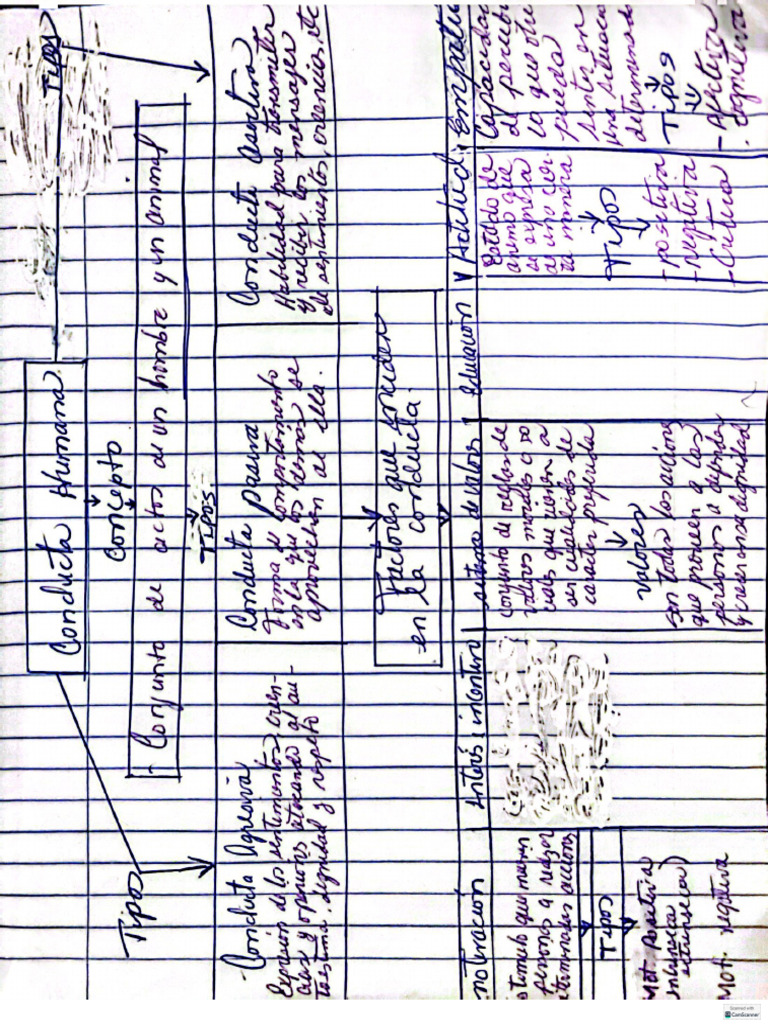 Conducta Humana
Tipos
Tipos
Concepto
Conjunto de actos de un hombre y un animal
Tipos
Conducta Agresiva
Expresión de los sentimientos, creen-
cias y opiniones atacando al au-
toestima, dignidad y respeto
Conducta pasiva
Forma de comportamiento
en la que los demás se
aprovechan de ella.
Conducta asertiva
Habilidad para transmitir
y recibir los mensajes
de sentimientos, creencias, etc
Factores que inciden
en la conducta.
motivación
stimulo que mueven
personas a realizar
determinadas acciones
Tipos
Mot. Positiva
intrínseca
extrínseca)
Mot. negativa
Interés i incentivo
sistema de valores
conjunto de reglas de
valores morales o so
ciales que vienen a
ser cualidades de
carácter preferida
Valores
son todas las acciones
que proveen a las
personas a defender
y crecer en su dignidad
educación
Actitud
Estado de
animo que
se expresa
de una cier
ta manera
Tipos
- positiva
- negativa
- Critica
Empatia
Capacidad
de percibir
lo que otro
pueda
sentir en
una situacion
determinada
Tipos
- Afectiva
- cognitiva
Scanned with
CamScanner